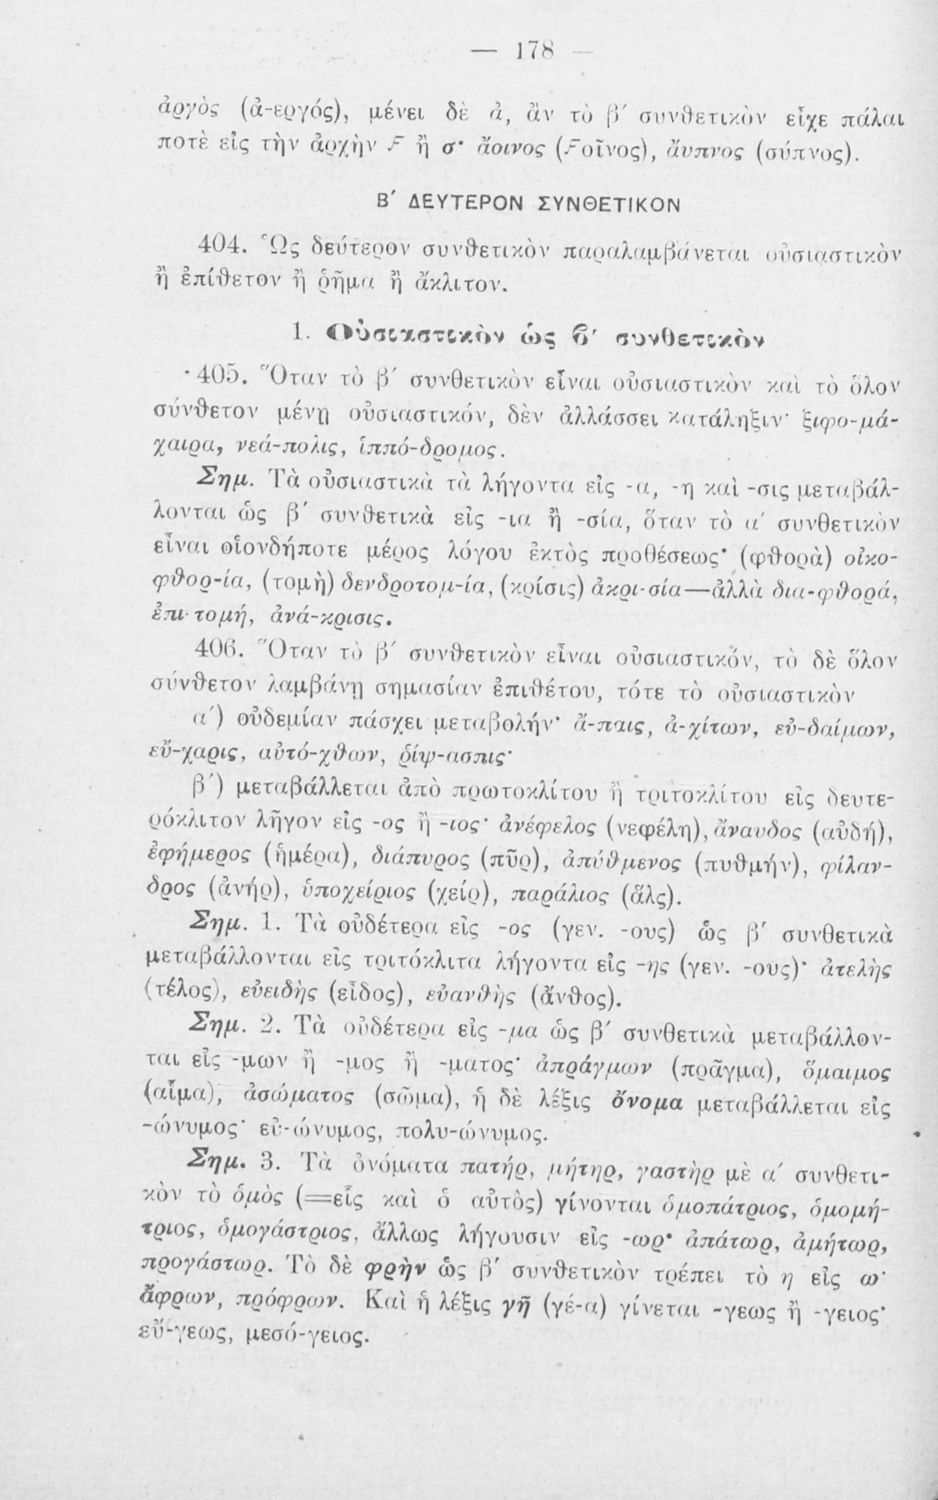 — 178 —
ἀργὸς (ἀ-εργός), μένει δὲ ἀ, ἂν τὸ β΄ συνθετικὸν εἶχε πάλαι
ποτὲ εἰς τὴν ἀρχὴν F ἢ σ· ἄοινος (Fοῖνος), ἄυπνος (σύπνος).
Β΄ ΔΕΥΤΕΡΟΝ ΣΥΝΘΕΤΙΚΟΝ
404. Ὡς δεύτερον συνθετικὸν παραλαμβάνεται οὐσιαστικὸν
ἢ ἐπίθετον ἢ ῥῆμα ἢ ἄκλιτον.
1. Οὐσιαστικὸν ὡς β΄ συνθετικὸν
405. Ὅταν τὸ β΄ συνθετικὸν εἶναι οὐσιαστικὸν καὶ τὸ ὅλον
σύνθετον μένῃ οὐσιαστικόν, δὲν ἀλλάσσει κατάληξιν· ξιφο-μά-
χαιρα, νεά-πολις, ἱππό-δρομος.
Σημ. Τὰ οὐσιαστικὰ τὰ λήγοντα εἰς -α, -η καὶ -σις μεταβάλ-
λονται ὡς β΄ συνθετικὰ εἰς -ια ἢ -σία, ὅταν τὸ α΄ συνθετικὸν
εἶναι οἱονδήποτε μέρος λόγου ἐκτὸς προθέσεως· (φθορὰ) οἰκο-
φθορ-ία, (τομὴ) δενδροτομ-ία, (κρίσις) ἀκρι-σία—ἀλλὰ δια-φθορά,
ἐπι-τομή, ἀνά-κρισις.
406. Ὅταν τὸ β΄ συνθετικὸν εἶναι οὐσιαστικόν, τὸ δὲ ὅλον
σύνθετον λαμβάνῃ σημασίαν ἐπιθέτου, τότε τὸ οὐσιαστικὸν
α΄) οὐδεμίαν πάσχει μεταβολήν· ἄ-παις, ἀ-χίτων, εὐ-δαίμων,
εὔ-χαρις, αὐτό-χθων, ῥίψ-ασπις·
β΄) μεταβάλλεται ἀπὸ πρωτοκλίτου ἢ τριτοκλίτου εἰς δευτε-
ρόκλιτον λῆγον εἰς -ος ἢ -ιος· ἀνέφελος (νεφέλη), ἄναυδος (αὐδή),
ἐφήμερος (ἡμέρα), διάπυρος (πῦρ), ἀπύθμενος (πυθμήν), φίλαν-
δρος (ἀνήρ), ὑποχείριος (χείρ), παράλιος (ἅλς).
Σημ. 1. Τὰ οὐδέτερα εἰς -ος (γεν. -ους) ὡς β΄ συνθετικὰ
μεταβάλλονται εἰς τριτόκλιτα λήγοντα εἰς -ης (γεν. -ους)· ἀτελὴς
(τέλος), εὐειδὴς (εἶδος), εὐανθὴς (ἄνθος).
Σημ. 2. Τὰ οὐδέτερα εἰς -μα ὡς β΄ συνθετικὰ μεταβάλλον-
ται εἰς -μων ἢ -μος ἢ -ματος· ἀπράγμων (πρᾶγμα), ὅμαιμος
(αἷμα), ἀσώματος (σῶμα), ἡ δὲ λέξις ὄνομα μεταβάλλεται εἰς
-ώνυμος· εὐ-ώνυμος, πολυ-ώνυμος.
Σημ. 3. Τὰ ὀνόματα πατήρ, μήτηρ, γαστὴρ μὲ α΄ συνθετι-
κὸν τὸ ὁμὸς (=εἷς καὶ ὁ αὐτὸς) γίνονται ὁμοπάτριος, ὁμομή-
τριος, ὁμογάστριος, ἄλλως λήγουσιν εἰς -ωρ· ἀπάτωρ, ἀμήτωρ,
προγάστωρ. Τὸ δὲ φρὴν ὡς β΄ συνθετικὸν τρέπει τὸ η εἰς ω·
ἄφρων, πρόφρων. Καὶ ἡ λέξις γῆ (γέ-α) γίνεται -γεως ἢ -γειος·
εὔ-γεως, μεσό-γειος.